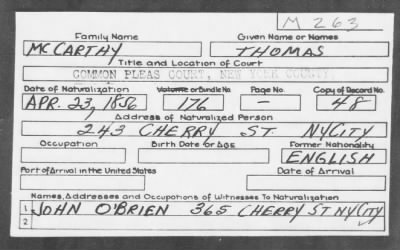 M 263
Family Name Given Name or Names
MCCARTHY THOMAS
Title and Location of Court
COMMON PLEAS COURT, NEW YORK COUNTY
Date of Naturalization Volume or Bundle No. Page No. Copy of Record No.
APR. 23, 1856 176 - 48
Address of Naturalized Person
243 CHERRY ST. NYCITY
Occupation Birth Date or Age Former Nationality
ENGLISH
Port of Arrival in the United States Date of Arrival
Names, Addresses and Occupations of Witnesses To Naturalization
1 JOHN O'BRIEN 365 CHERRY ST NY CITY
2